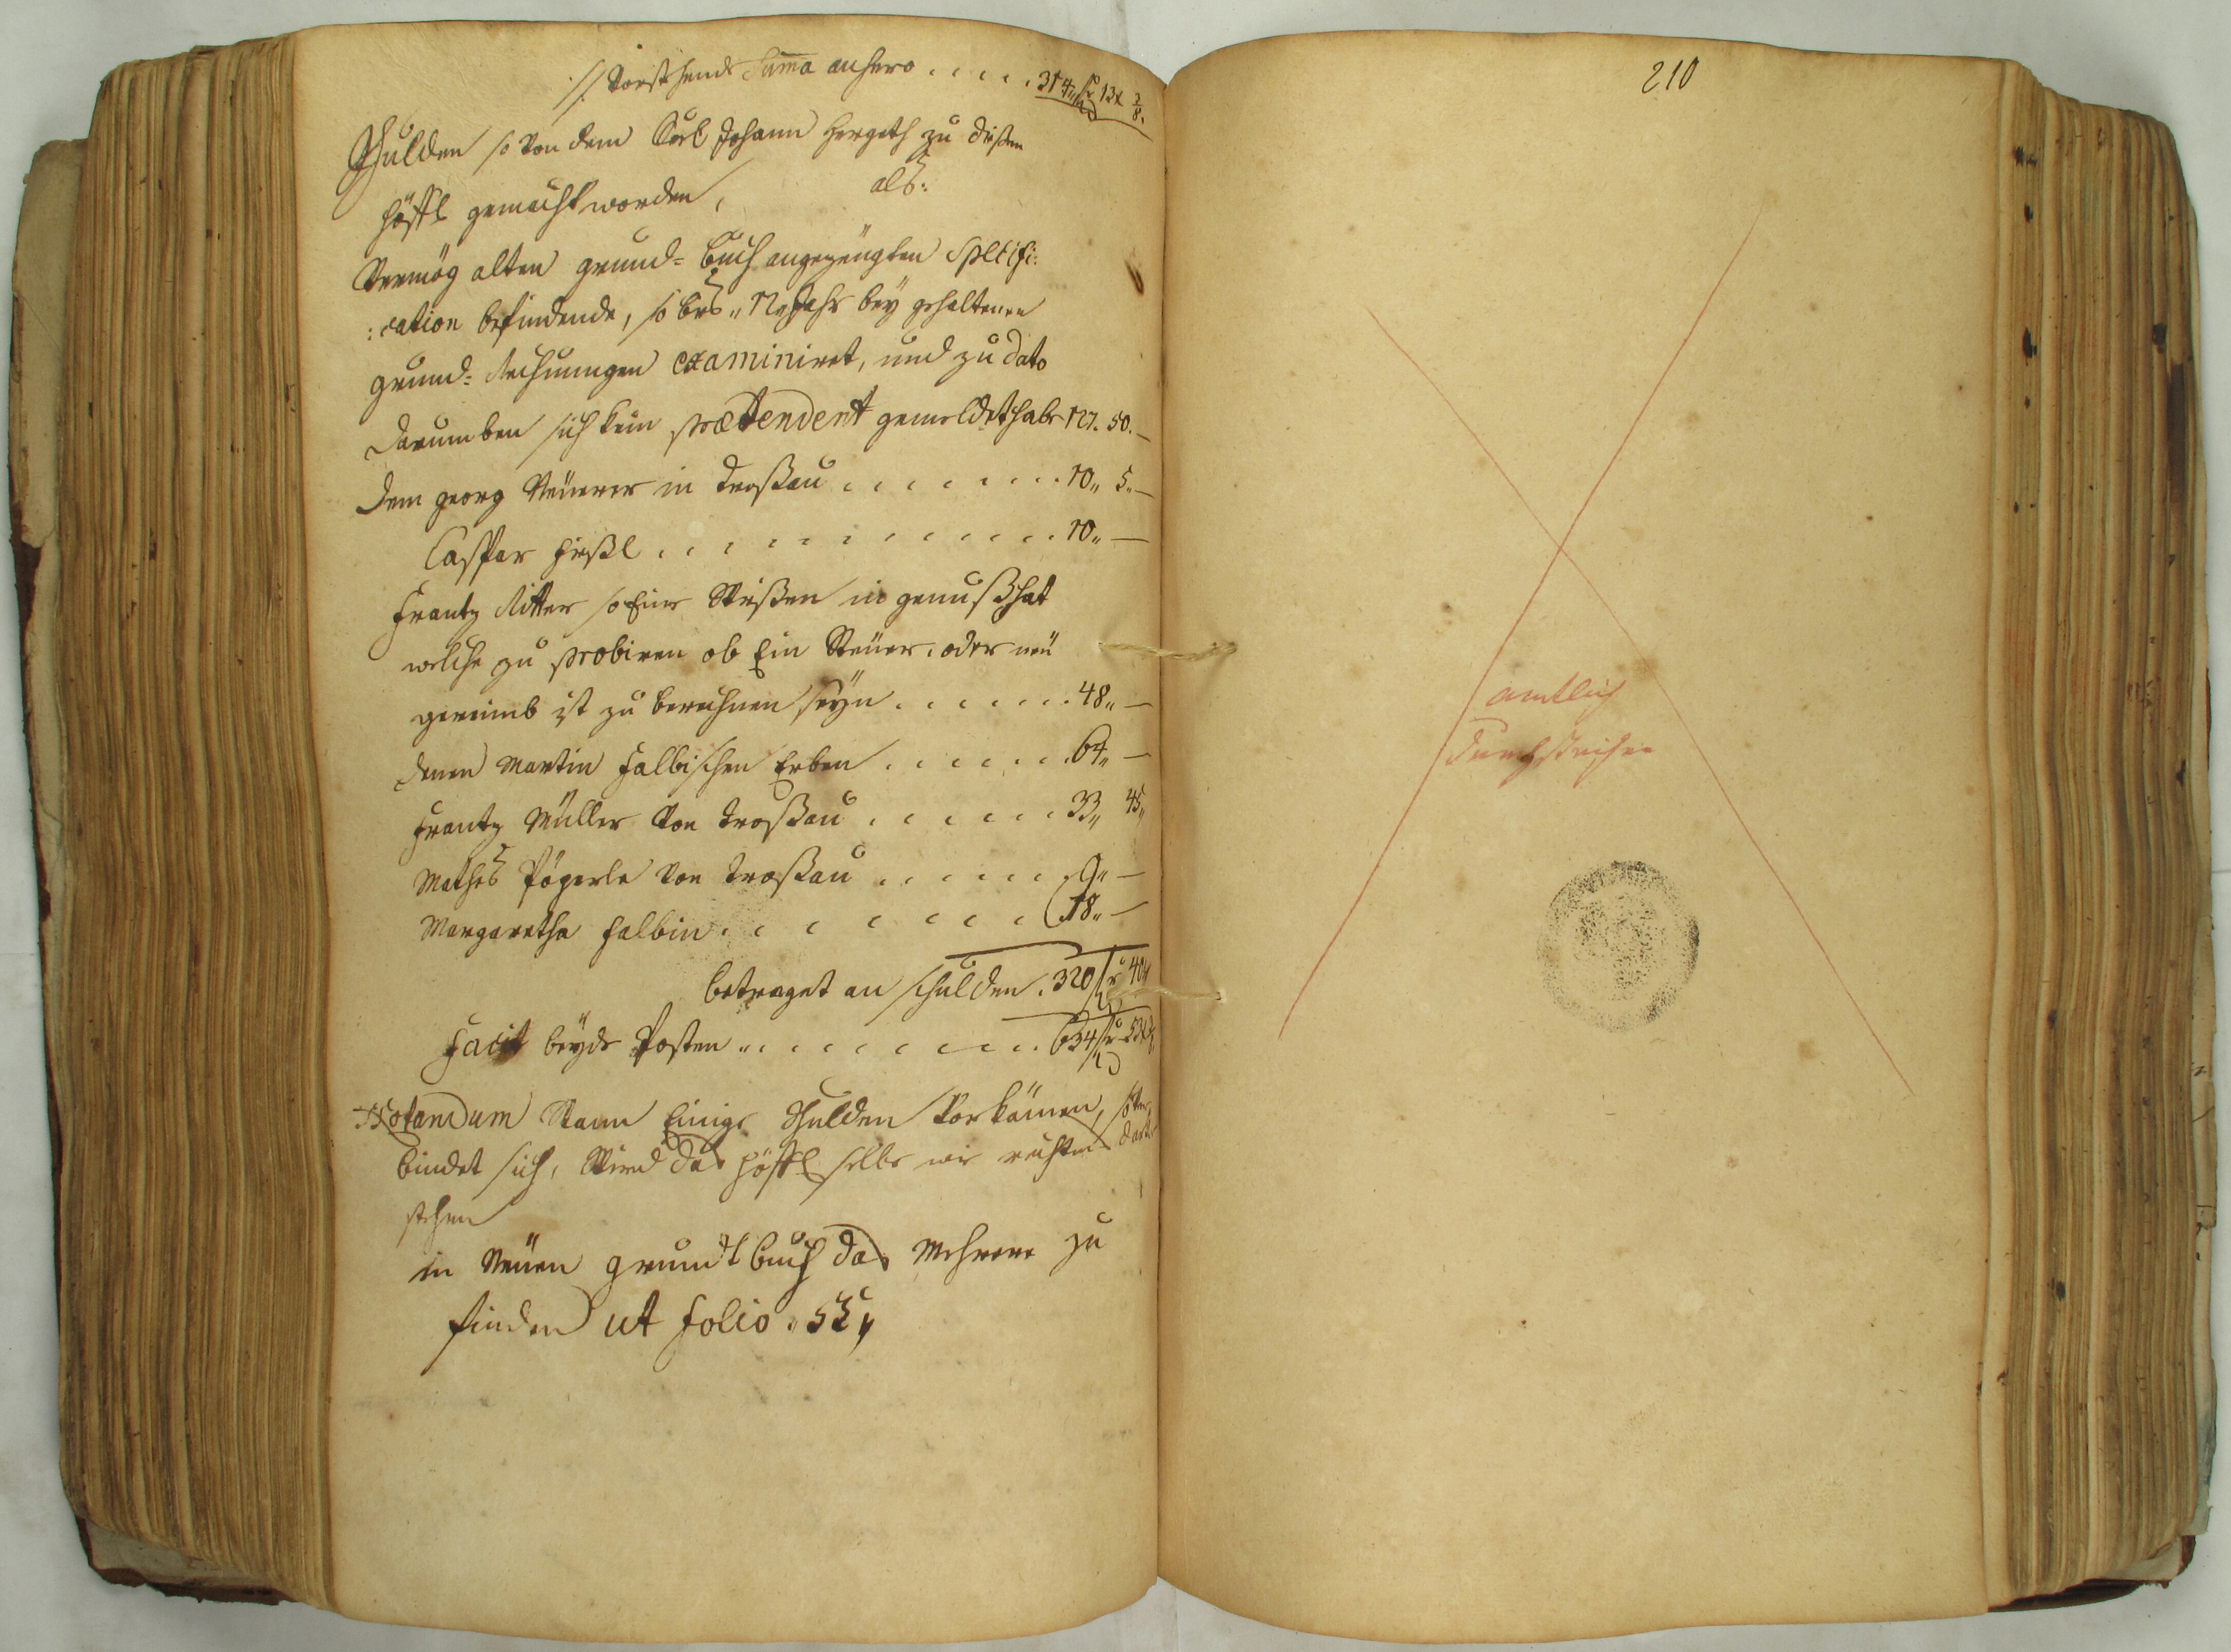 Vorstehende Suma anhero . . . . . 314 fl 13 x 3/8.
Schulden so von dem Johann Hergeth zu dießen
Höffl gemacht worden, als:
Vermög alten grund= Buch angezeugten Specifi:
:cation befindende, so bis 12 Jahr bey gehaltenen
grund= Rechnungen examiniret, und zu dato
darumben sich kein prætendent gemeldet habe 127. 50. —
dem georg Neuerer in Troßau . . . . . . . 10,, 5. —
Caspar Heßl . . . . . . . . . . . . 10,, —
Frantz Ritter so Eine Wießen in genuß hat
welche zu probiren ob Ein Steuer. oder neu
gereimb ist zu berechnen seyn . . . . . . 48,, —
denen Martin Halbischen Erben . . . . . . 64,, —
Frantz Müller von Troßau . . . . . . 33,, 45,,
Mathes von Troßau . . . . . 9,, —
Margaretha Halbin . . . . . . . . 18,, —
betraget an schulden . 320 fl 40
Facit beyde Posten . . . . . . . . . 634 fl 53
Notandum Wann Einige Schulden Vorkämen, so ver
bindet sich, Wird das Höffl selbe wie rechtens dar
stehen
in Neuen grundtbuch das Mehrere zu
finden ut folio . 53 ,,
210
amtlich
durchstrichen